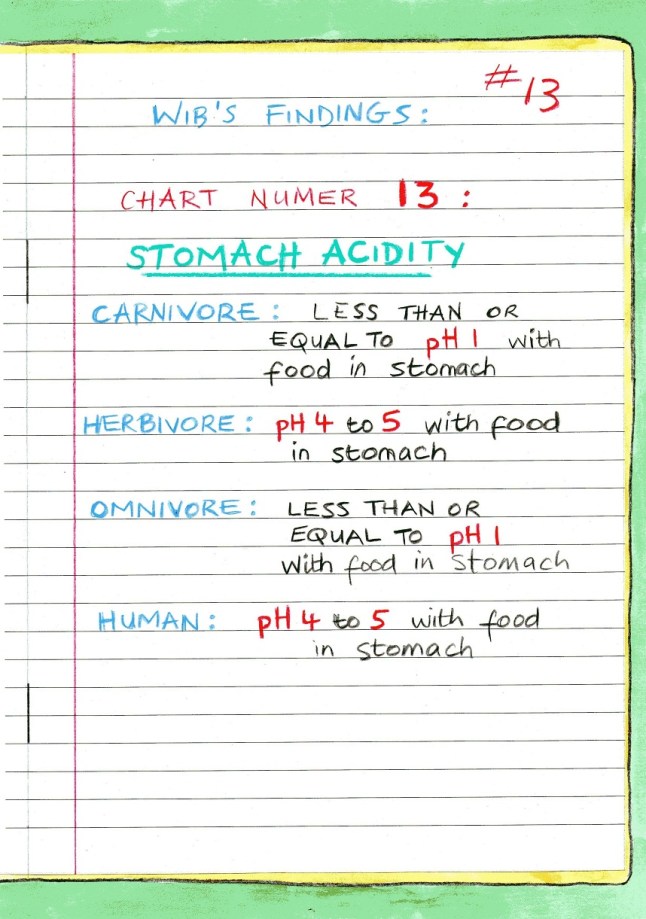 #13
WIB'S FINDINGS:
CHART NUMER 13:
STOMACH ACIDITY
CARNIVORE: LESS THAN OR
EQUAL TO pH 1 with
food in stomach
HERBIVORE: pH 4 to 5 with food
in stomach
OMNIVORE: LESS THAN OR
EQUAL TO pH 1
with food in stomach
HUMAN: pH 4 to 5 with food
in stomach